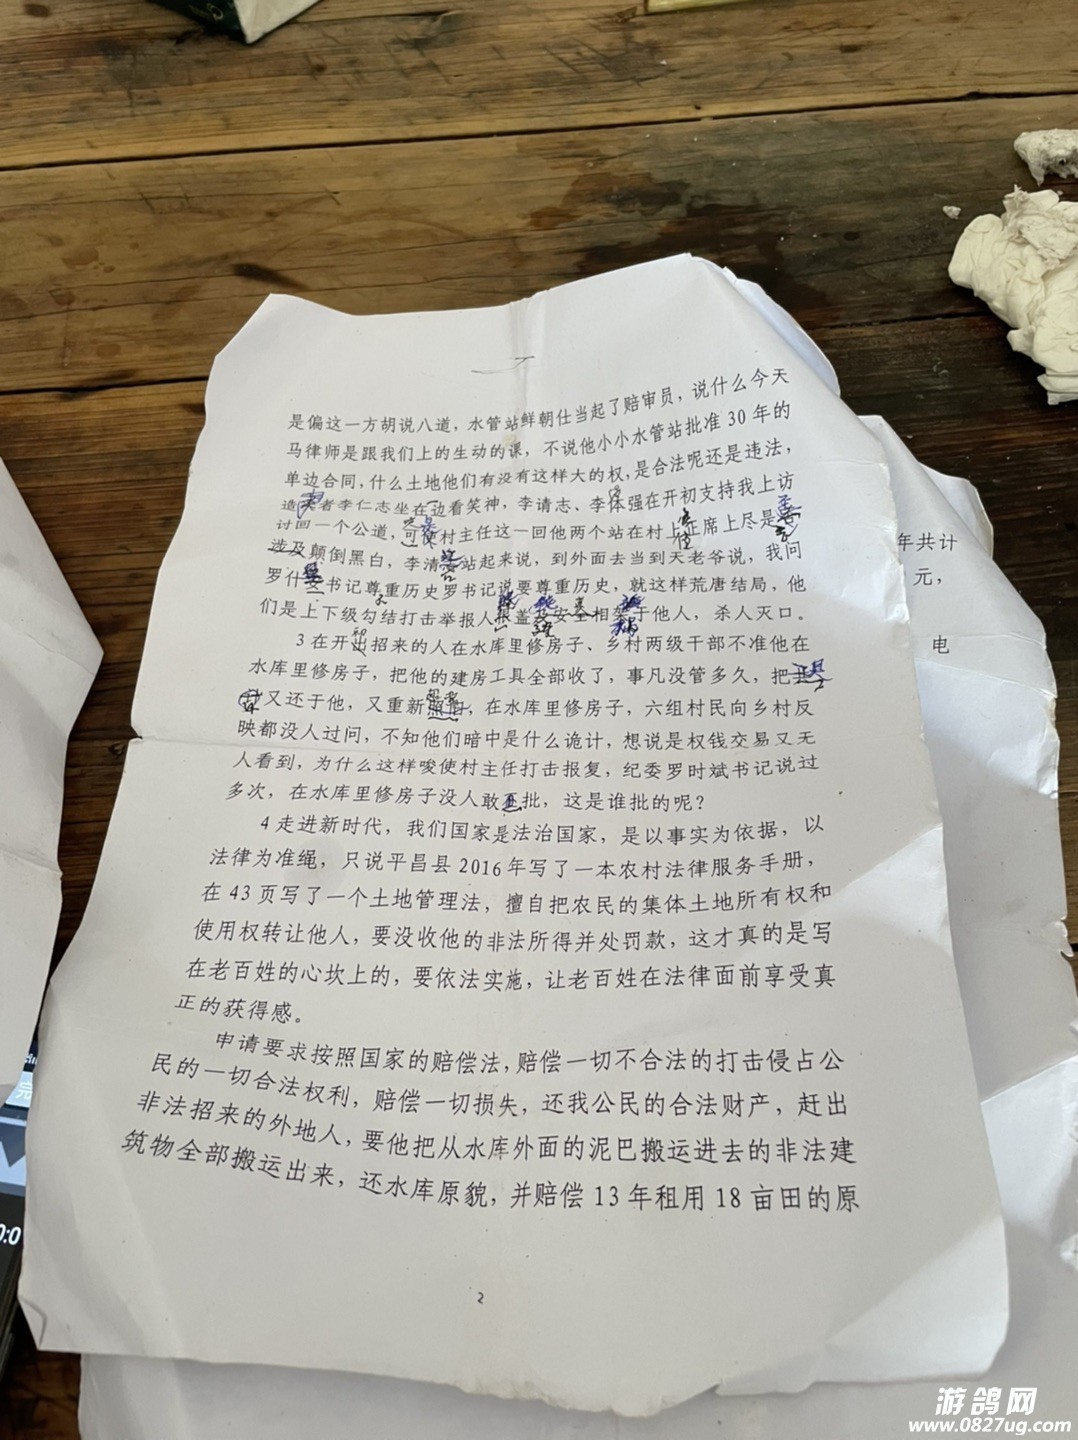 是偏这一方胡说八道，水管站鲜朝仕当起了赔审员，说什么今天
马律师是跟我们上的生动的课，不说他小小水管站批准 30 年的
单边合同，什么土地他们有没有这样大的权，是合法呢还是违法，
造者李仁志坐在一边看笑神，李请志、李体强在开初支持我上访
讨回一个公道，可使村主任这一回他两个站在村上正席上尽是
涉及颠倒黑白，李清站起来说，到外面去当到天老爷说，我问
罗什书记尊重历史罗书记说要尊重历史，就这样荒唐结局，他
们是上下级勾结打击举报人盖安全相于他人，杀人灭口。
3 在开招来的人在水库里修房子、乡村两级干部不准他在
水库里修房子，把他的建房工具全部收了，事凡没管多久，把
又还于他，又重新，在水库里修房子，六组村民向乡村反
映都没人过问，不知他们暗中是什么诡计，想说是权钱交易又无
人看到，为什么这样唆使村主任打击报复，纪委罗时斌书记说过
多次，在水库里修房子没人敢批，这是谁批的呢？
4 走进新时代，我们国家是法治国家，是以事实为依据，以
法律为准绳，只说平昌县 2016 年写了一本农村法律服务手册，
在 43 页写了一个土地管理法，擅自把农民的集体土地所有权和
使用权转让他人，要没收他的非法所得并处罚款，这才真的是写
在老百姓的心坎上的，要依法实施，让老百姓在法律面前享受真
正的获得感。
申请要求按照国家的赔偿法，赔偿一切不合法的打击侵占公
民的一切合法权利，赔偿一切损失，还我公民的合法财产，赶出
非法招来的外地人，要他把从水库外面的泥巴搬运进去的非法建
筑物全部搬运出来，还水库原貌，并赔偿 13 年租用 18 亩田的原
2
年共计
元，
电
游鸽网
www.0827ug.com